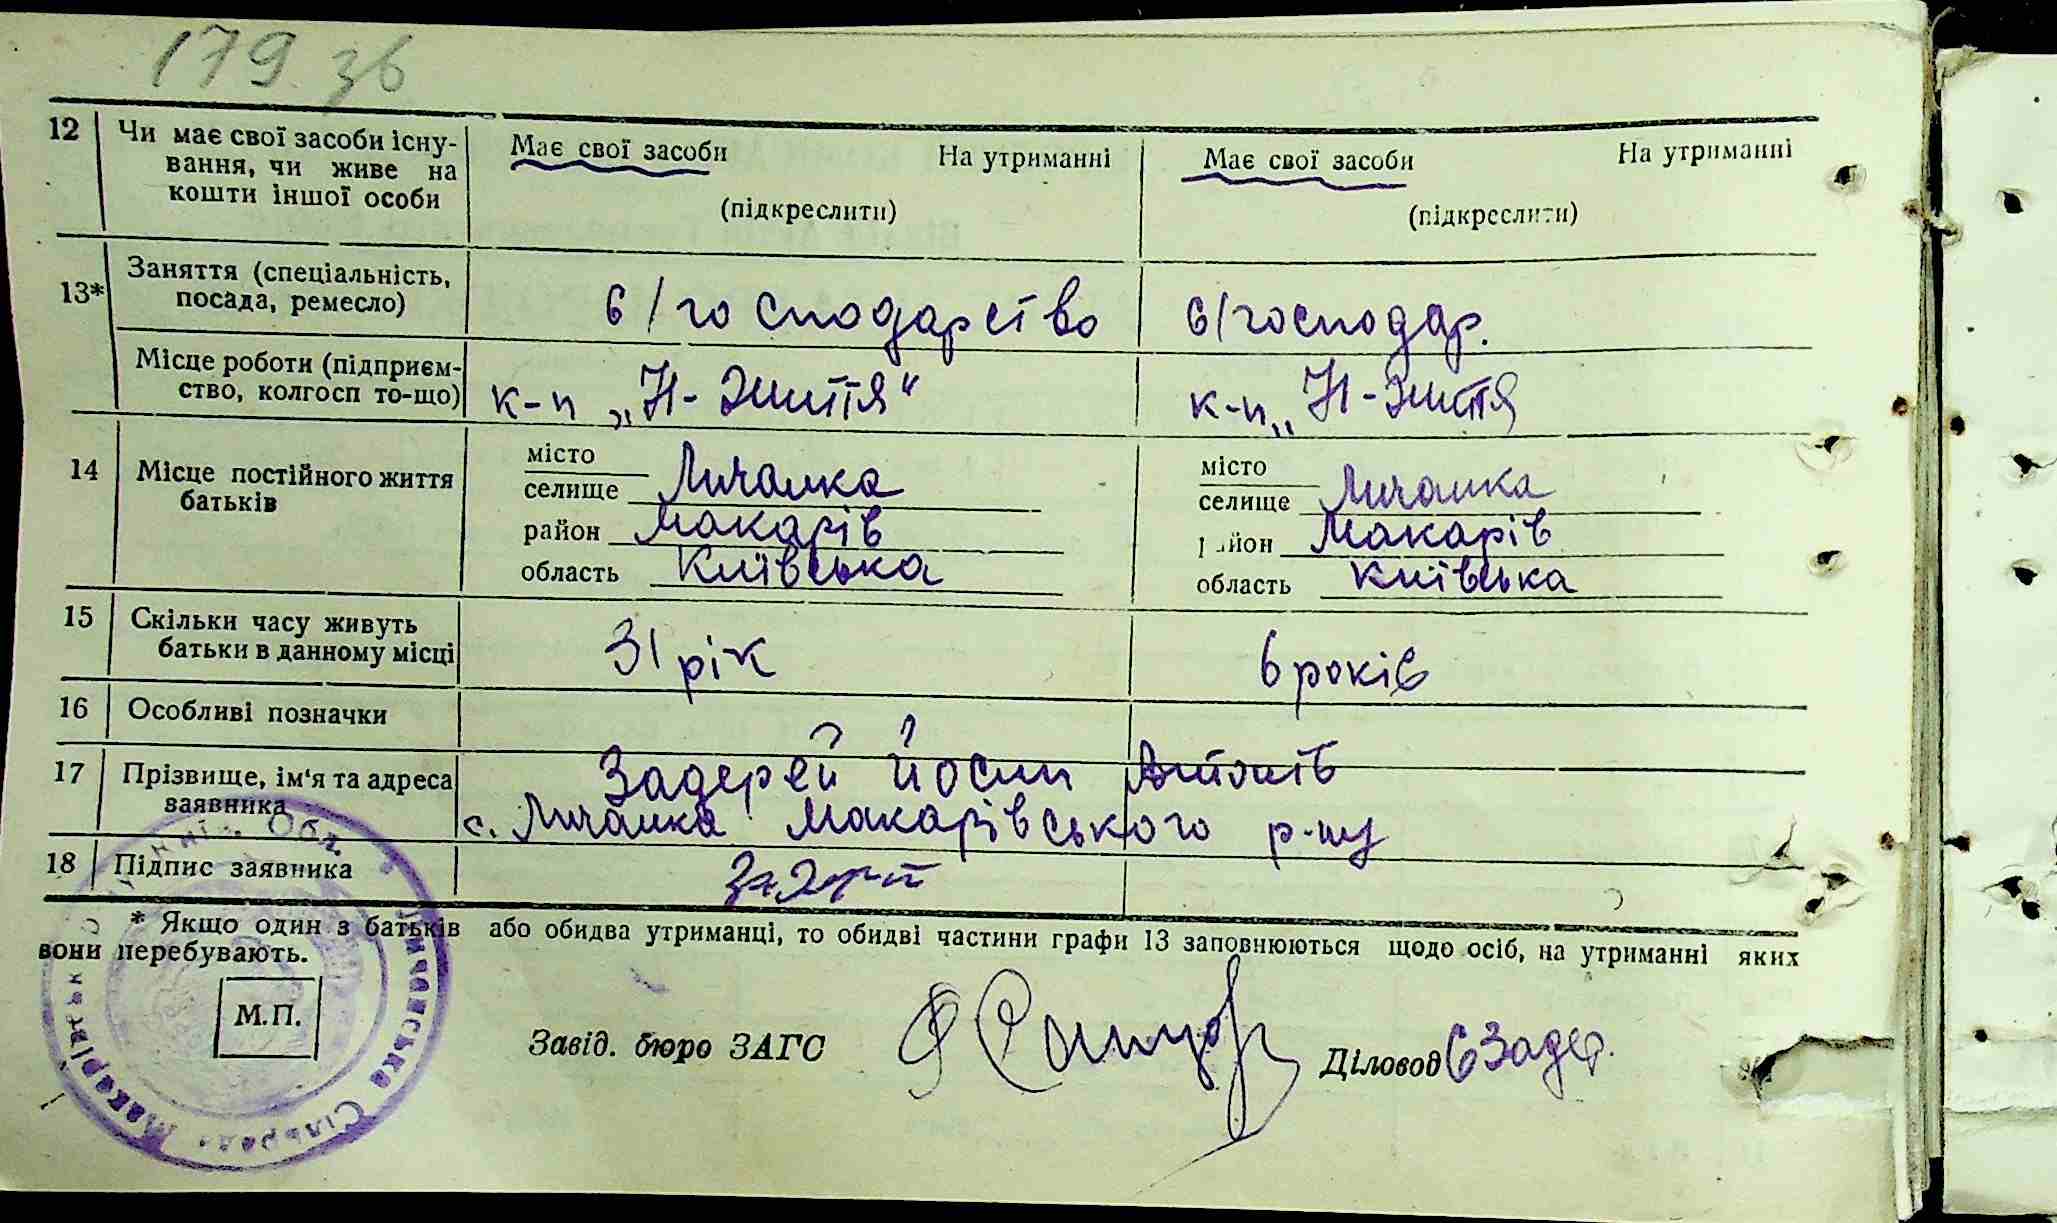 179 зв
12 Чи має свої засоби існу- Має свої засоби На утриманні Має свої засоби На утриманні
вання, чи живе на
кошти іншої особи (підкреслити) (підкреслити)
13* Заняття (спеціальність, посада, ремесло) с/господарство с/господар.
Місце роботи (підприєм-
ство, колгосп то-що) к-п „Н-Життя" к-п „Н-Життя
14 Місце постійного життя батьків
місто місто
селище Личанка селище Личанка
район Макарів район Макарів
область Київська область Київська
15 Скільки часу живуть
батьки в данному місці 31 рік 6 років
16 Особливі позначки
17 Прізвище, ім'я та адреса Задерей Йосип Антонів
заявника с. Личанка Макарівського р-ну
18 Підпис заявника Задерей
* Якщо один з батьків або обидва утриманці, то обидві частини графи 13 заповнюються щодо осіб, на утриманні яких
вони перебувають.
М.П.
Завід. бюро ЗАГС Діловод С Задер.
Личанська Сільрада Макарівськ Обл.